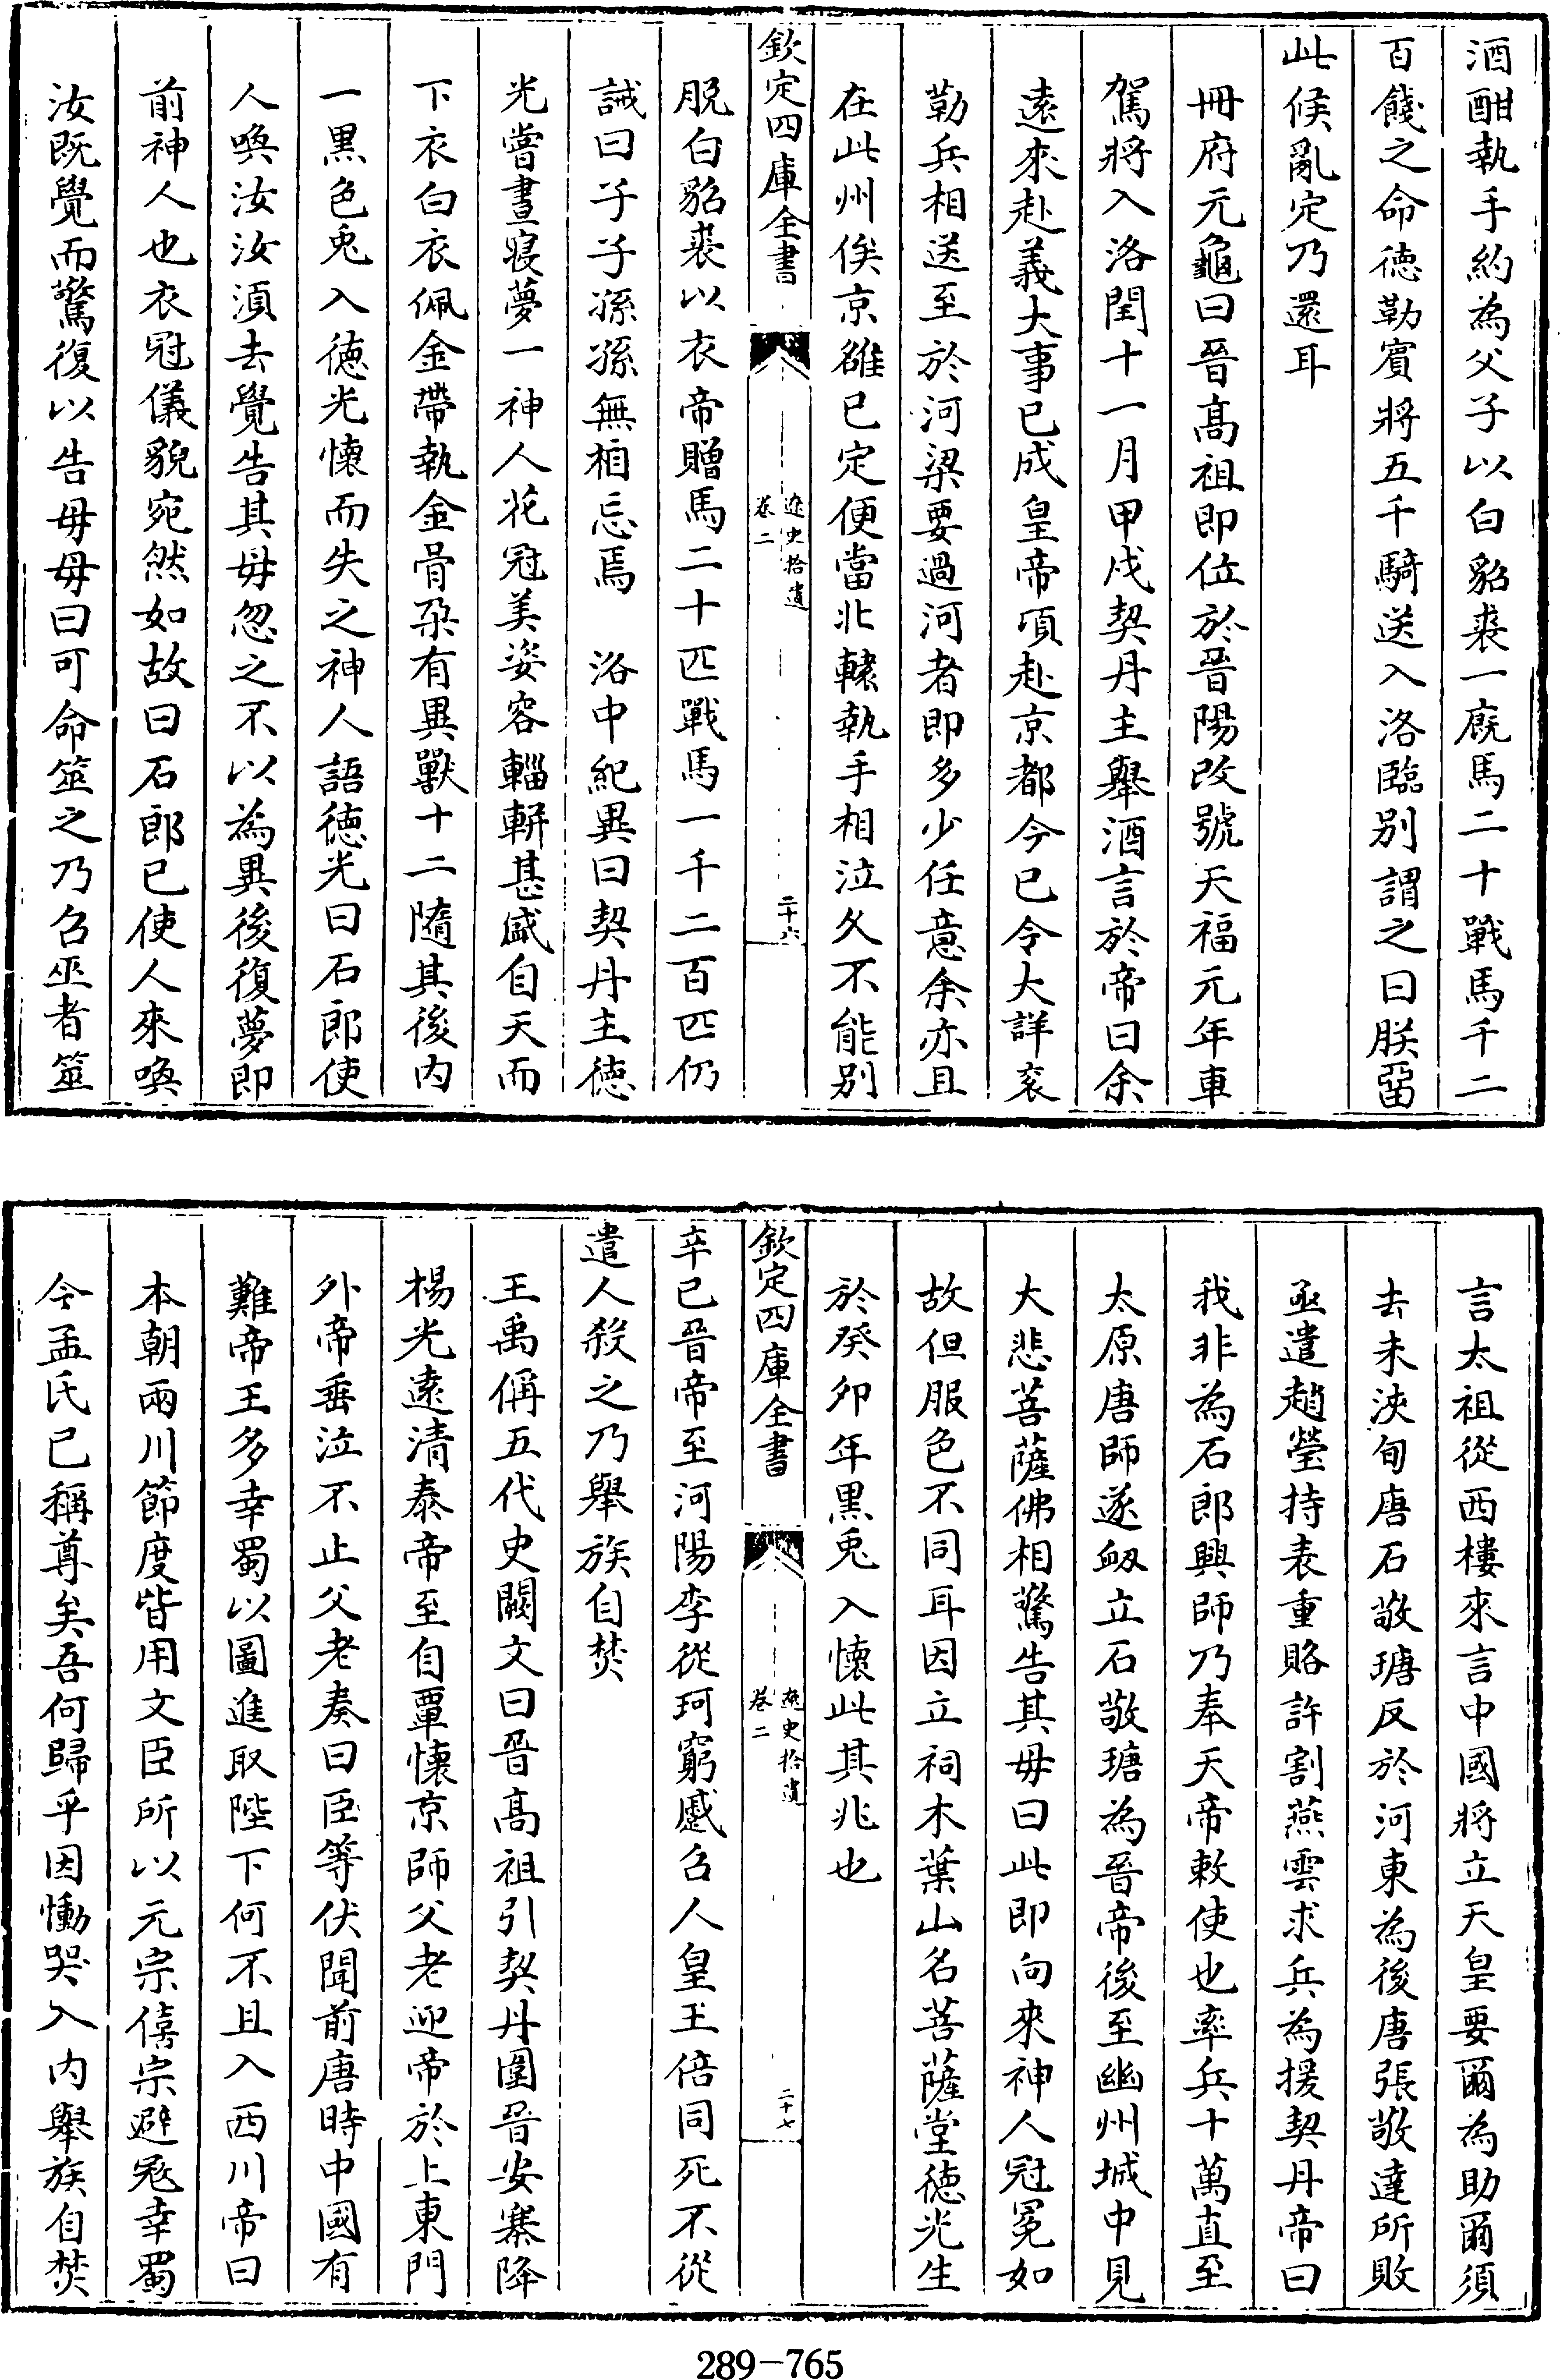 酒酣執手約為父子以白貂裘一廐馬二十戰馬千二
百餞之命徳勒賔將五千騎送入洛臨别謂之曰朕㽞
此候亂定乃還耳
冊府元龜曰晉髙祖即位於晉陽改號天福元年車
駕將入洛閏十一月甲戌契丹主舉酒言於帝曰余
逺來赴義大事已成皇帝項赴京都今已令大詳衮
勒兵相送至於河梁要過河者即多少任意余亦且
在此州俟京雒已定便當北轅執手相泣久不能别
欽定四庫全書
遼史拾遺
卷二
二十六
脱白貂裘以衣帝贈馬二十匹戰馬一千二百匹仍
誡曰子子孫孫無相忘焉 洛中紀異曰契丹主徳
光嘗晝寢夢一神人花冠美姿容輜軿甚盛自天而
下衣白衣佩金帶執金骨朶有異獸十二隨其後内
一黒色兎入徳光懷而失之神人語徳光曰石郎使
人喚汝汝湏去覺告其毋忽之不以為異後復夢即
前神人也衣冠儀貌宛然如故曰石郎已使人來喚
汝既覺而驚復以告毋毋曰可命筮之乃召巫者筮
言太祖從西樓來言中國將立天皇要爾為助爾須
去未浹旬唐石敬瑭反於河東為後唐張敬達所敗
亟遣趙瑩持表重賂許割燕雲求兵為援契丹帝曰
我非為石郎興師乃奉天帝敕使也率兵十萬直至
太原唐師遂衂立石敬瑭為晉帝後至幽州城中見
大悲菩薩佛相驚告其毋曰此即向來神人冠冕如
故但服色不同耳因立祠木葉山名菩薩堂徳光生
於癸夘年黒兎入懷此其兆也
欽定四庫全書
遼史拾遺
卷二
二十七
辛已晉帝至河陽李從珂窮蹙召人皇王倍同死不從
遣人殺之乃舉族自焚
王禹偁五代史闕文曰晉髙祖引契丹圍晉安寨降
楊光逺清泰帝至自覃懷京師父老迎帝於上東門
外帝垂泣不止父老奏曰臣等伏聞前唐時中國有
難帝王多幸蜀以圖進取陛下何不且入西川帝曰
本朝兩川節度皆用文臣所以元宗僖宗避冦幸蜀
今孟氏已稱尊矣吾何歸乎因慟哭入内舉族自焚
289-765